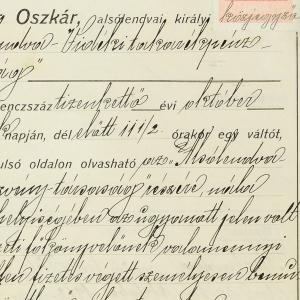 Oszkár, alsólendvai királyi közjegyző
Vidéki takarékpénz-
enczszáz tizenkettő évi október
napján, dél előtt 11 1/2 órakor egy váltót,
ulsó oldalon olvasható az "Alsólendva
társaság" részére nála
helyiségében az ugyanott jelen volt
főkönyvelőnek valamennyi
fizetés végett személyesen bemu